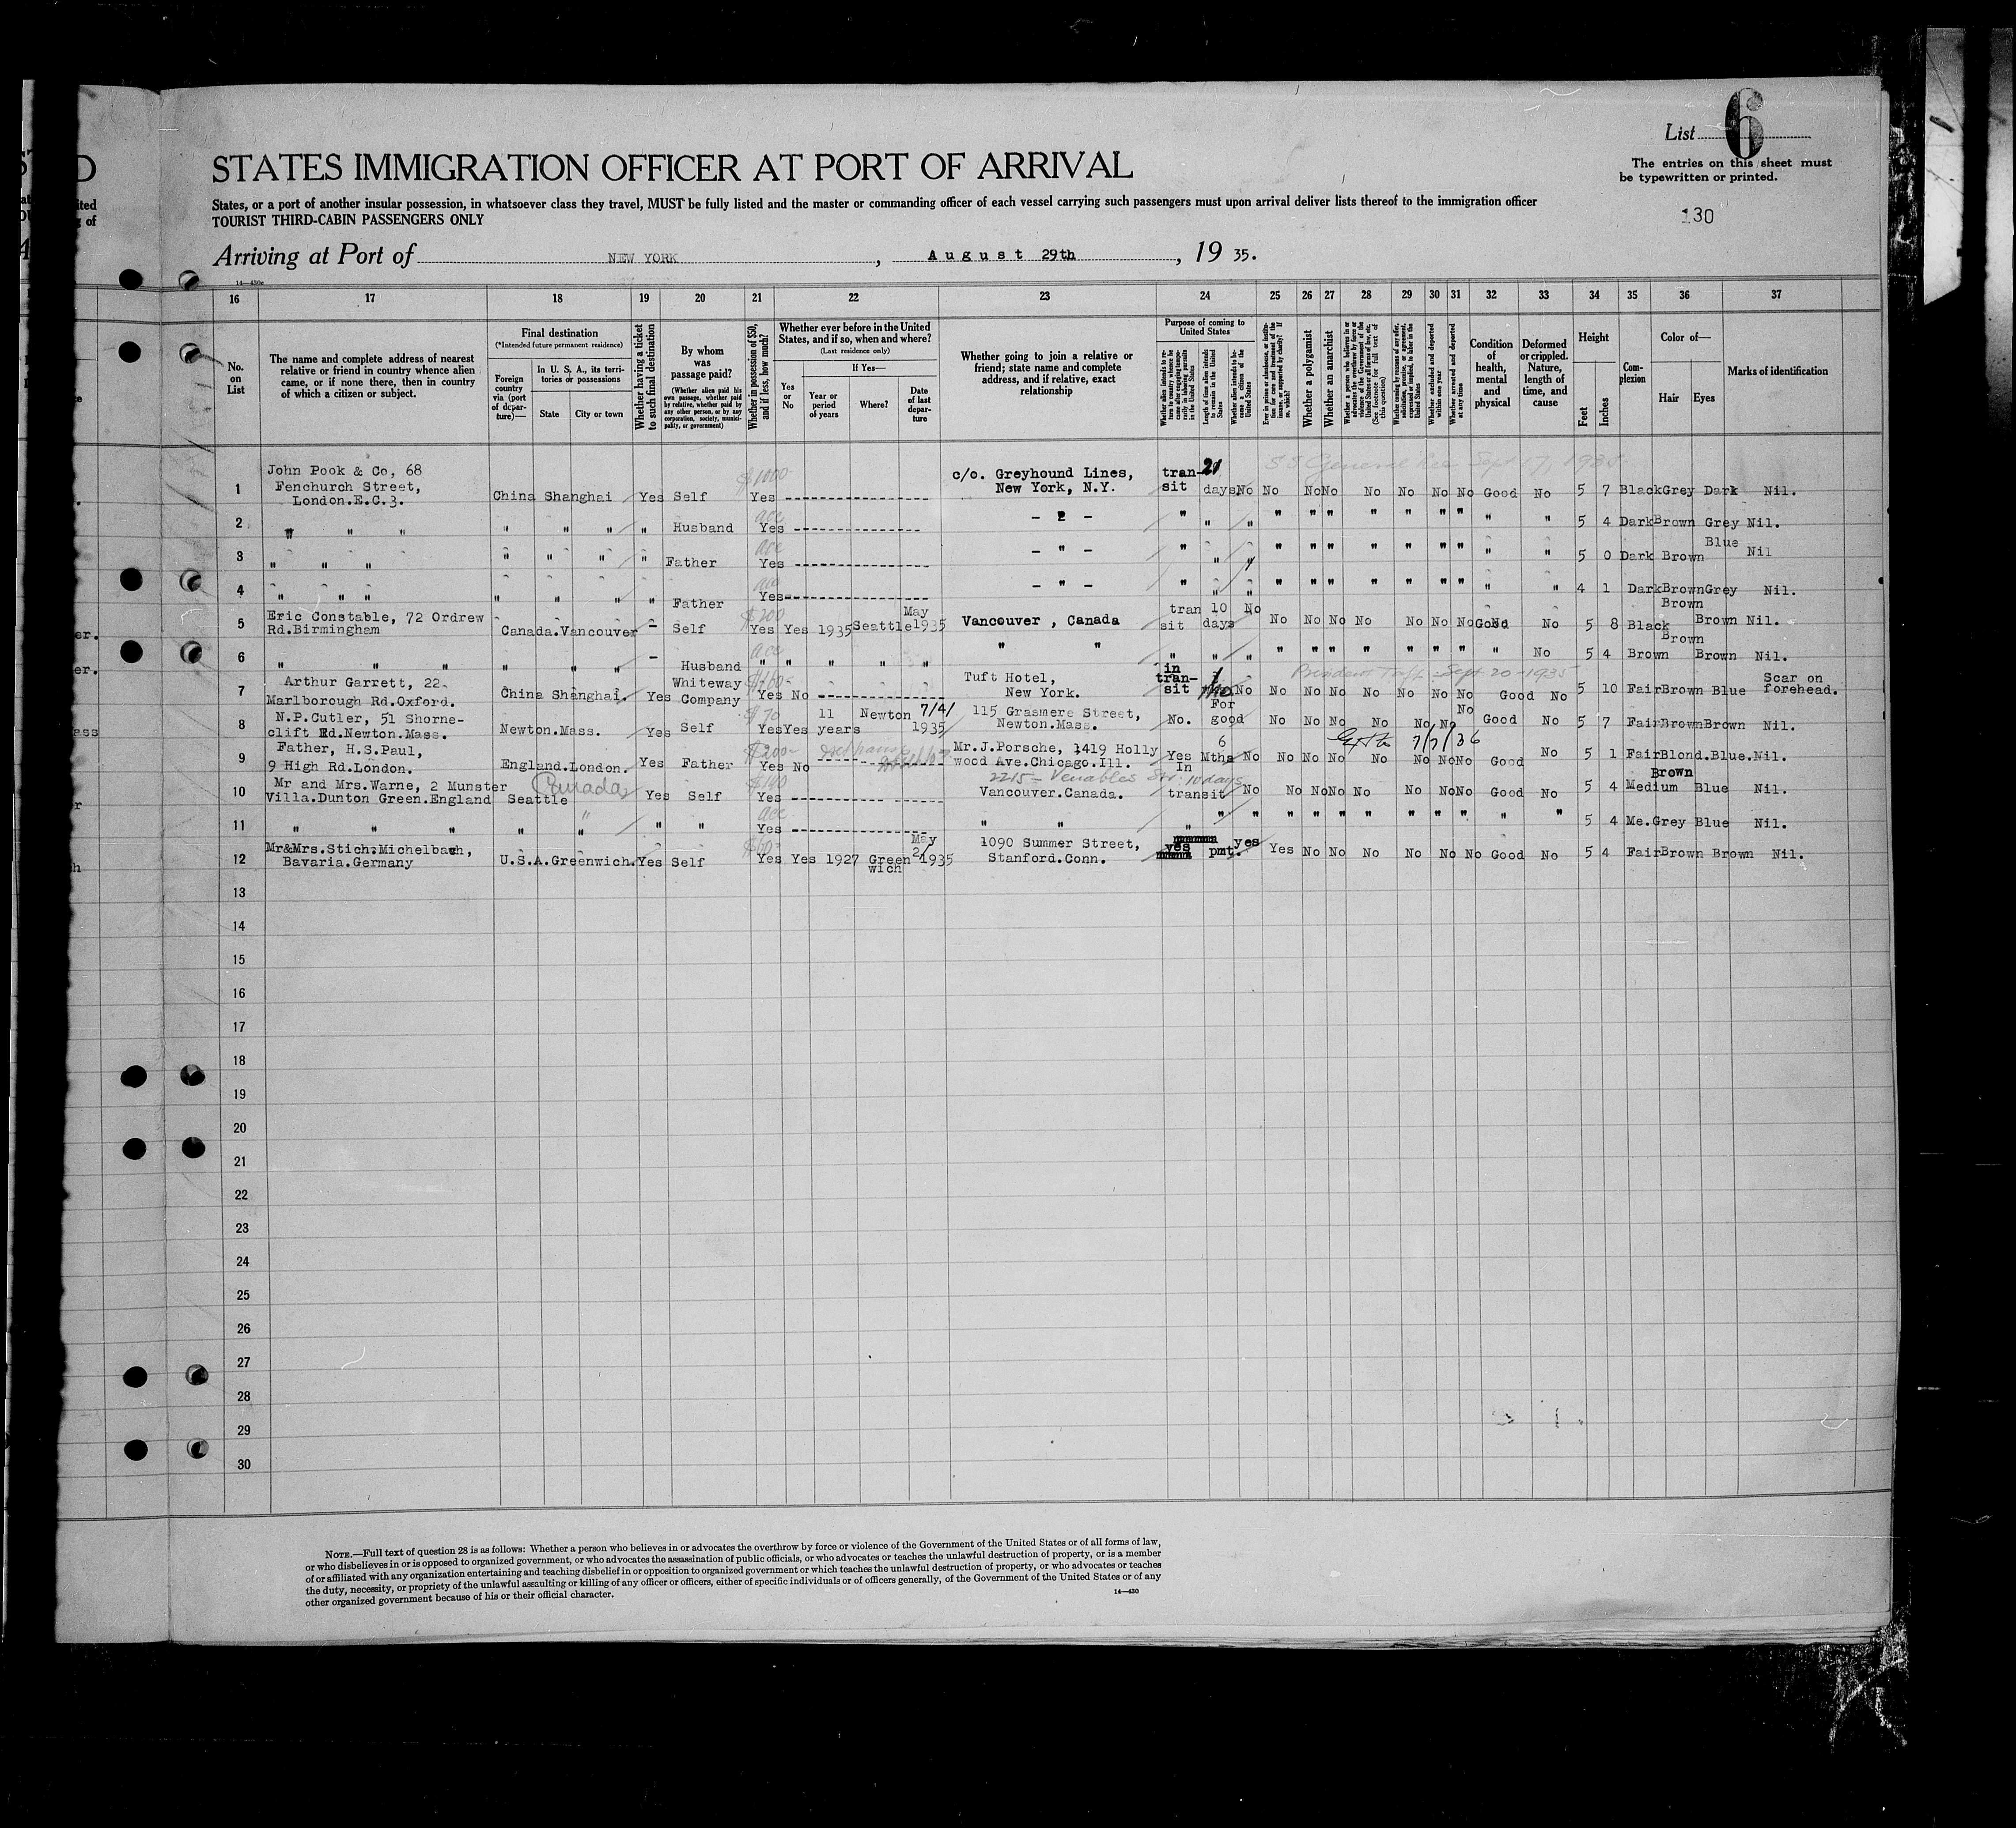 List 6
The entries on this sheet must
be typewritten or printed.
STATES IMMIGRATION OFFICER AT PORT OF ARRIVAL
States, or a port of another insular possession, in whatsoever class they travel, MUST be fully listed and the master or commanding officer of each vessel carrying such passengers must upon arrival deliver lists thereof to the immigration officer
TOURIST THIRD-CABIN PASSENGERS ONLY
130
Arriving at Port of NEW YORK, August 29th, 19 35.
16 17 18 19 20 21 22 23 24 25 26 27 28 29 30 31 32 33 34 35 36 37
No. on List
The name and complete address of nearest relative or friend in country whence alien came, or if none there, then in country of which a citizen or subject.
Final destination
(*Intended future permanent residence)
Foreign country via (port of departure)—
In U. S. A., its territories or possessions
State
City or town
Whether having a ticket to such final destination
By whom was passage paid?
(Whether alien paid his own passage, whether paid by relative, whether paid by any other person, or by any corporation, society, municipality, or government)
Whether in possession of $50, and if less, how much?
Whether ever before in the United States, and if so, when and where?
(Last residence only)
Yes or No
If Yes—
Year or period of years
Where?
Date of last departure
Whether going to join a relative or friend; state name and complete address, and if relative, exact relationship
Purpose of coming to United States
Whether a polygamist
Whether an anarchist
Condition of health, mental and physical
Deformed or crippled. Nature, length of time, and cause
Height
Feet
Inches
Complexion
Color of—
Hair
Eyes
Marks of identification
1 John Pook & Co, 68 Fenchurch Street, London.E.C.3. China Shanghai Yes Self $1000 Yes c/o. Greyhound Lines, New York, N.Y. transit days No No No No No No No No Good No 5 7 Black Grey Dark Nil.
2 " " " " " " " Husband Yes " " " " " " " " " " " " 5 4 Dark Brown Grey Nil.
3 " " " " " " " Father Yes - " - " " " " " " " " " " " " 5 0 Dark Brown Blue Nil
4 " " " " " " " Father Yes - " - " " " " " " " " " " " " 4 1 Dark Brown Grey Nil.
5 Eric Constable, 72 Ordrew Rd.Birmingham Canada.Vancouver - Self $200 Yes Yes 1935 Seattle May 1935 Vancouver , Canada transit 10 days No No No No No No No No Good No 5 8 Black Brown Brown Nil.
6 " " " " " " - Husband " " " " " " " " " " " " " " " " " " " No 5 4 Brown Brown Brown Nil.
7 Arthur Garrett, 22 Marlborough Rd.Oxford. China Shanghai. Yes Whiteway Company Yes No Tuft Hotel, New York. in transit No No No No No No No No Good No 5 10 Fair Brown Blue Scar on forehead.
8 N.P.Cutler, 51 Shorneclift Rd.Newton.Mass. Newton.Mass. Yes Self $70 Yes Yes 11 years Newton 7/4/1935 115 Grasmere Street, Newton.Mass. No. For good No No No No No No No Good No 5 7 Fair Brown Brown Nil.
9 Father, H.S.Paul, 9 High Rd.London. England.London. Yes Father $200 Yes No Mr.J.Porsche, 1419 Hollywood Ave.Chicago.Ill. Yes 6 Mths No No No No No No No No Good No 5 1 Fair Blond.Blue.Nil.
7/7/36
10 Mr and Mrs.Warne, 2 Munster Villa.Dunton Green.England Seattle Canada Yes Self $140 Yes 2215 - Venables Str. Vancouver.Canada. In transit 10 days No No No No No No No No Good No 5 4 Medium Brown Blue Nil.
11 " " " " " " " Yes " " " " " " " " " " " " " " 5 4 Me.Grey Blue Nil.
12 Mr&Mrs.Stich:Michelbach, Bavaria.Germany U.S.A.Greenwich. Yes Self Yes Yes 1927 Greenwich May 2/1935 1090 Summer Street, Stanford.Conn. yes pmt. yes Yes No No No No No No Good No 5 4 Fair Brown Brown Nil.
13
14
15
16
17
18
19
20
21
22
23
24
25
26
27
28
29
30
NOTE.—Full text of question 28 is as follows: Whether a person who believes in or advocates the overthrow by force or violence of the Government of the United States or of all forms of law,
or who disbelieves in or is opposed to organized government, or who advocates the assassination of public officials, or who advocates or teaches the unlawful destruction of property, or is a member
of or affiliated with any organization entertaining and teaching disbelief in or opposition to organized government or which teaches the unlawful destruction of property, or who advocates or teaches
the duty, necessity, or propriety of the unlawful assaulting or killing of any officer or officers, either of specific individuals or of officers generally, of the Government of the United States or of any
other organized government because of his or their official character.
14—430